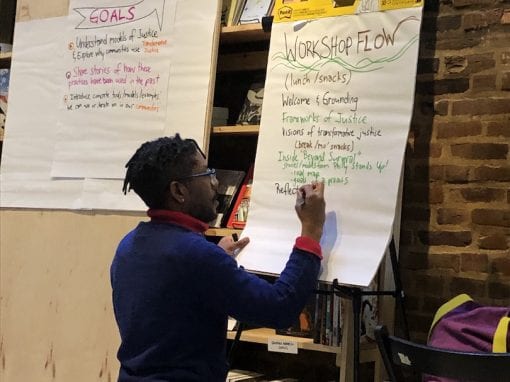 GOALS
Understand models of Justice
& Explore why communities use Transformative
Justice
Share stories of how these
practices have been used in the past
Introduce concrete tools/models/examples
we can use or iterate on in our communities
Post-it
WORKSHOP FLOW
(lunch/snacks)
Welcome & Grounding
Frameworks of Justice
Visions of transformative justice
(break/mo' snacks)
Inside "Beyond Survival"
stories/models from Philly Stands Up!
- road map
- goals of a process
Reflec